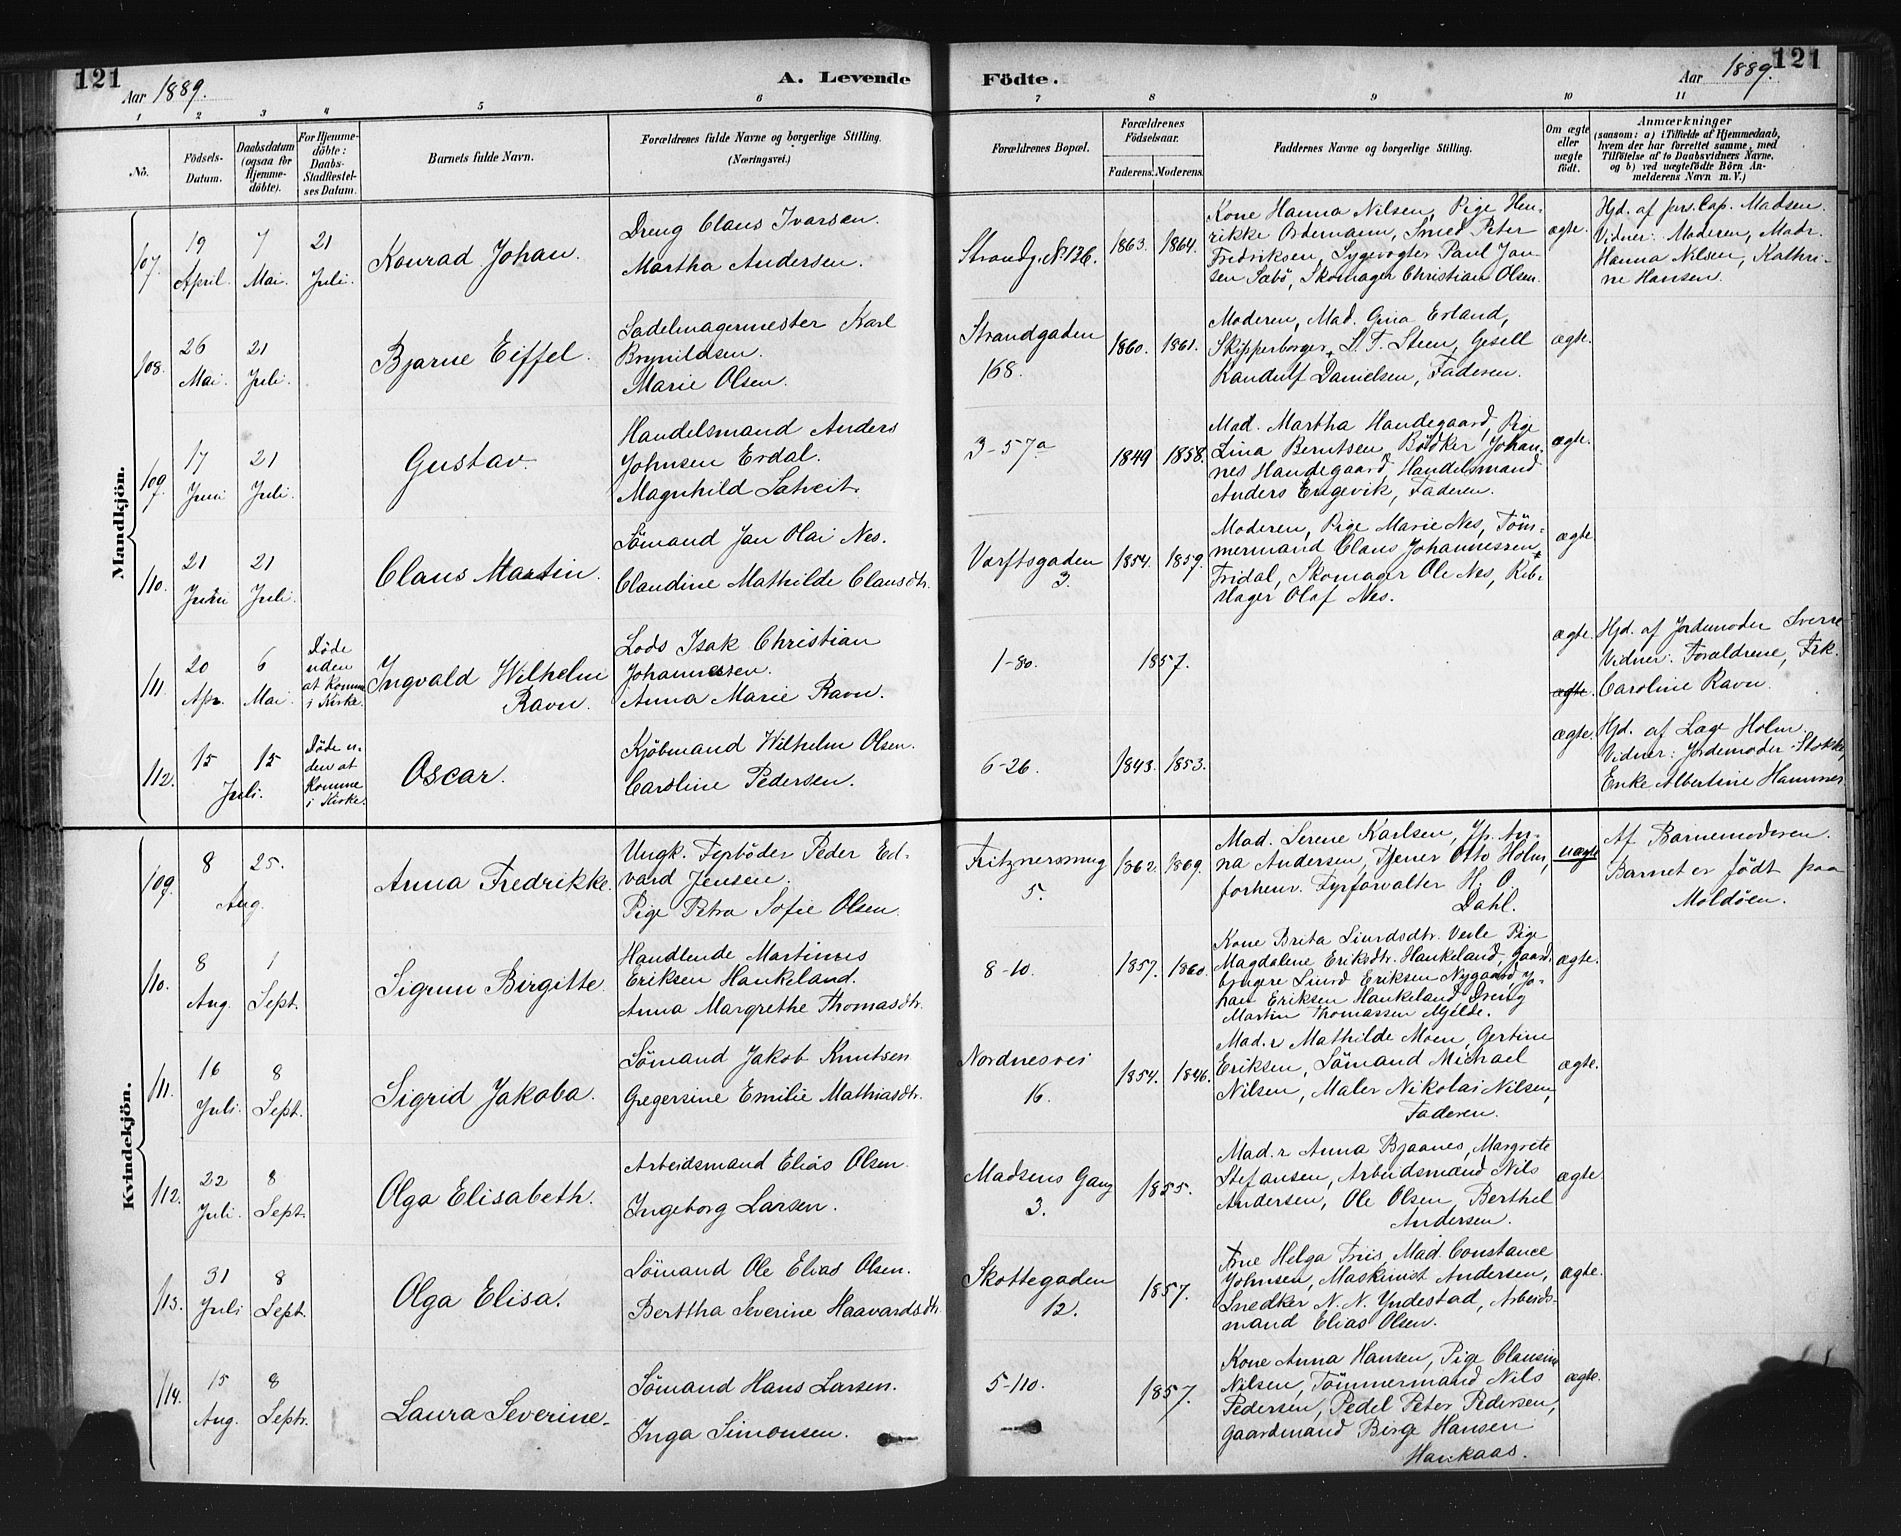 121
Aar 1889.
A. Levende Födte.
Aar 1889.
121
1 2 3 4 5 6 7 8 9 10 11
No.
Födsels-
Datum.
Daabsdatum
(ogsaa for
Hjemme-
döbte).
For Hjemme-
döbte:
Daabs-
Stadfæstel-
ses Datum.
Barnets fulde Navn.
Forældrenes fulde Navne og borgerlige Stilling.
(Næringsvei.)
Forældrenes Bopæl.
Forældrenes
Födselsaar.
Faderens. Moderens.
Faddernes Navne og borgerlige Stilling.
Om ægte
eller
uægte
födt.
Anmærkninger
(saasom: a) i Tilfælde af Hjemmedaab,
hvem der har forrettet samme, med
Tilföielse af to Daabsvidners Navne,
og b) ved uægtefödte Börn An-
melderens Navn m. V.)
Mandkjön.
107.
19
April.
7
Mai.
21
Juli.
Konrad Johan.
Dreng Claus Ivarsen.
Martha Andersen.
Strandg. No 126.
1863. 1864.
Kone Hanna Nilsen, Pige Hen-
rikke Ordemann, Smed Peter
Fredriksen, Sygevogter Paul Jan
sen Sabö, Skomager Christian Olsen.
ægte.
Hjd. af per. Cap. Madsen.
Vidner: Moderen, Madr.
Hanna Nilsen, Kathri-
ne Hansen.
108.
26
Mai.
21
Juli.
Bjarne Eiffel.
Sadelmagermester Karl
Brynildsen.
Marie Olsen.
Strandgaden
168.
1860. 1861.
Moderen, Mad. Gina Erland,
Skipperborger S. T. Steen, Gesell
Randulf Danielsen, Faderen.
ægte.
109.
17
Juni
21
Juli.
Gustav.
Handelsmand Anders
Johnsen Erdal.
Magnhild Satveit.
3-57a
1849 1858.
Mad. Martha Handegaard, Pige
Lina Berntsen, Bödker Johan-
nes Handegaard, Handelsmand
Anders Engevik, Faderen.
ægte.
110.
21
Juni
21
Juli.
Claus Martin.
Sömand Jan Olai Nes.
Claudine Mathilde Clausdtr.
Værftsgaden
3.
1854. 1859.
Moderen, Pige Marie Nes, Töm-
mermand Claus Johannessen
Fridal, Skomager Ole Nes, Reb-
slager Olaf Nes.
ægte
111.
20
Apr.
6
Mai.
Döde
uden
at komme
i Kirke.
Ingvald Wilhelm
Ravn.
Lods Isak Christian
Johannessen.
Anna Marie Ravn.
1-80.
1857.
ægte.
ægte.
Hjd. af Jordemoder Sverre
Vidner: Forældrene, Frk.
Caroline Ravn.
112.
15 15
Juli.
Döde u-
den at
komme
i Kirke.
Oscar.
Kjöbmand Wilhelm Olsen.
Caroline Pedersen.
6-26.
1843. 1853.
ægte.
Hjd. af Læge Holm.
Vidner: Jordemoder Stokke,
Enke Albertine Hammer
Kvindekjön.
109.
8 25.
Aug.
Anna Fredrikke.
Ungk. Fyrböder Peder Ed-
vard Jensen.
Pige Petra Sofie Olsen.
Fritznersmug
5.
1862. 1869.
Mad. Serene Karlsen, Jfr. An-
na Andersen, Tjener Otto Holm,
forhenv. Fyrforvalter H. O.
Dahl.
uægte
Af Barnemoderen.
Barnet er födt paa
Moldöen.
110.
8
Aug.
1
Sept.
Sigrun Birgitte.
Handlende Martinus
Eriksen Haukeland.
Anna Margrethe Thomasdtr.
8-10.
1857. 1860.
Kone Brita Siurdsdtr. Veile Pige
Magdalene Eriksdtr. Haukeland, Gaard-
brugere Siurd Eriksen Nygaard, Jo-
han Eriksen Haukeland, Dreng
Martin Thomassen Mjelde.
ægte.
111.
16
Juli.
8
Sept.
Sigrid Jakoba.
Sömand Jakob Knutsen
Gregersine Emilie Mathiasdtr.
Nordnesvei
16.
1854. 1846.
Mad.r Mathilde Moen, Gertine
Eriksen, Sömand Michael
Nilsen, Maler Nikolai Nilsen,
Faderen.
ægte.
112.
22
Juli.
8
Sept.
Olga Elisabeth.
Arbeidsmand Elias Olsen.
Ingeborg Larsen.
Madsens Gang
3.
1855.
Mad.r Anna Bjaanes, Margrete
Stefansen, Arbeidsmænd Nils
Andersen, Ole Olsen, Berthel
Andersen.
ægte.
113.
31
Juli
8
Sept.
Olga Elisa.
Sömand Ole Elias Olsen.
Berttha Severine Haavardsdtr.
Skottegaden
12.
1857.
Frue Helga Friis, Mad. Constance
Johnsen, Maskinist Andersen,
Snedker N. N. Yndestad, Arbeids-
mand Elias Olsen.
ægte.
114.
15
Aug.
8
Septr.
Laura Severine.
Sömand Hans Larsen.
Inga Simonsen.
5-110.
1857.
Kone Anna Hansen, Pige Clausine
Nilsen, Tömmermand Nils
Pedersen, Pedel Peter Pedersen,
Gaardmand Birge Hansen
Haukaas.
ægte.